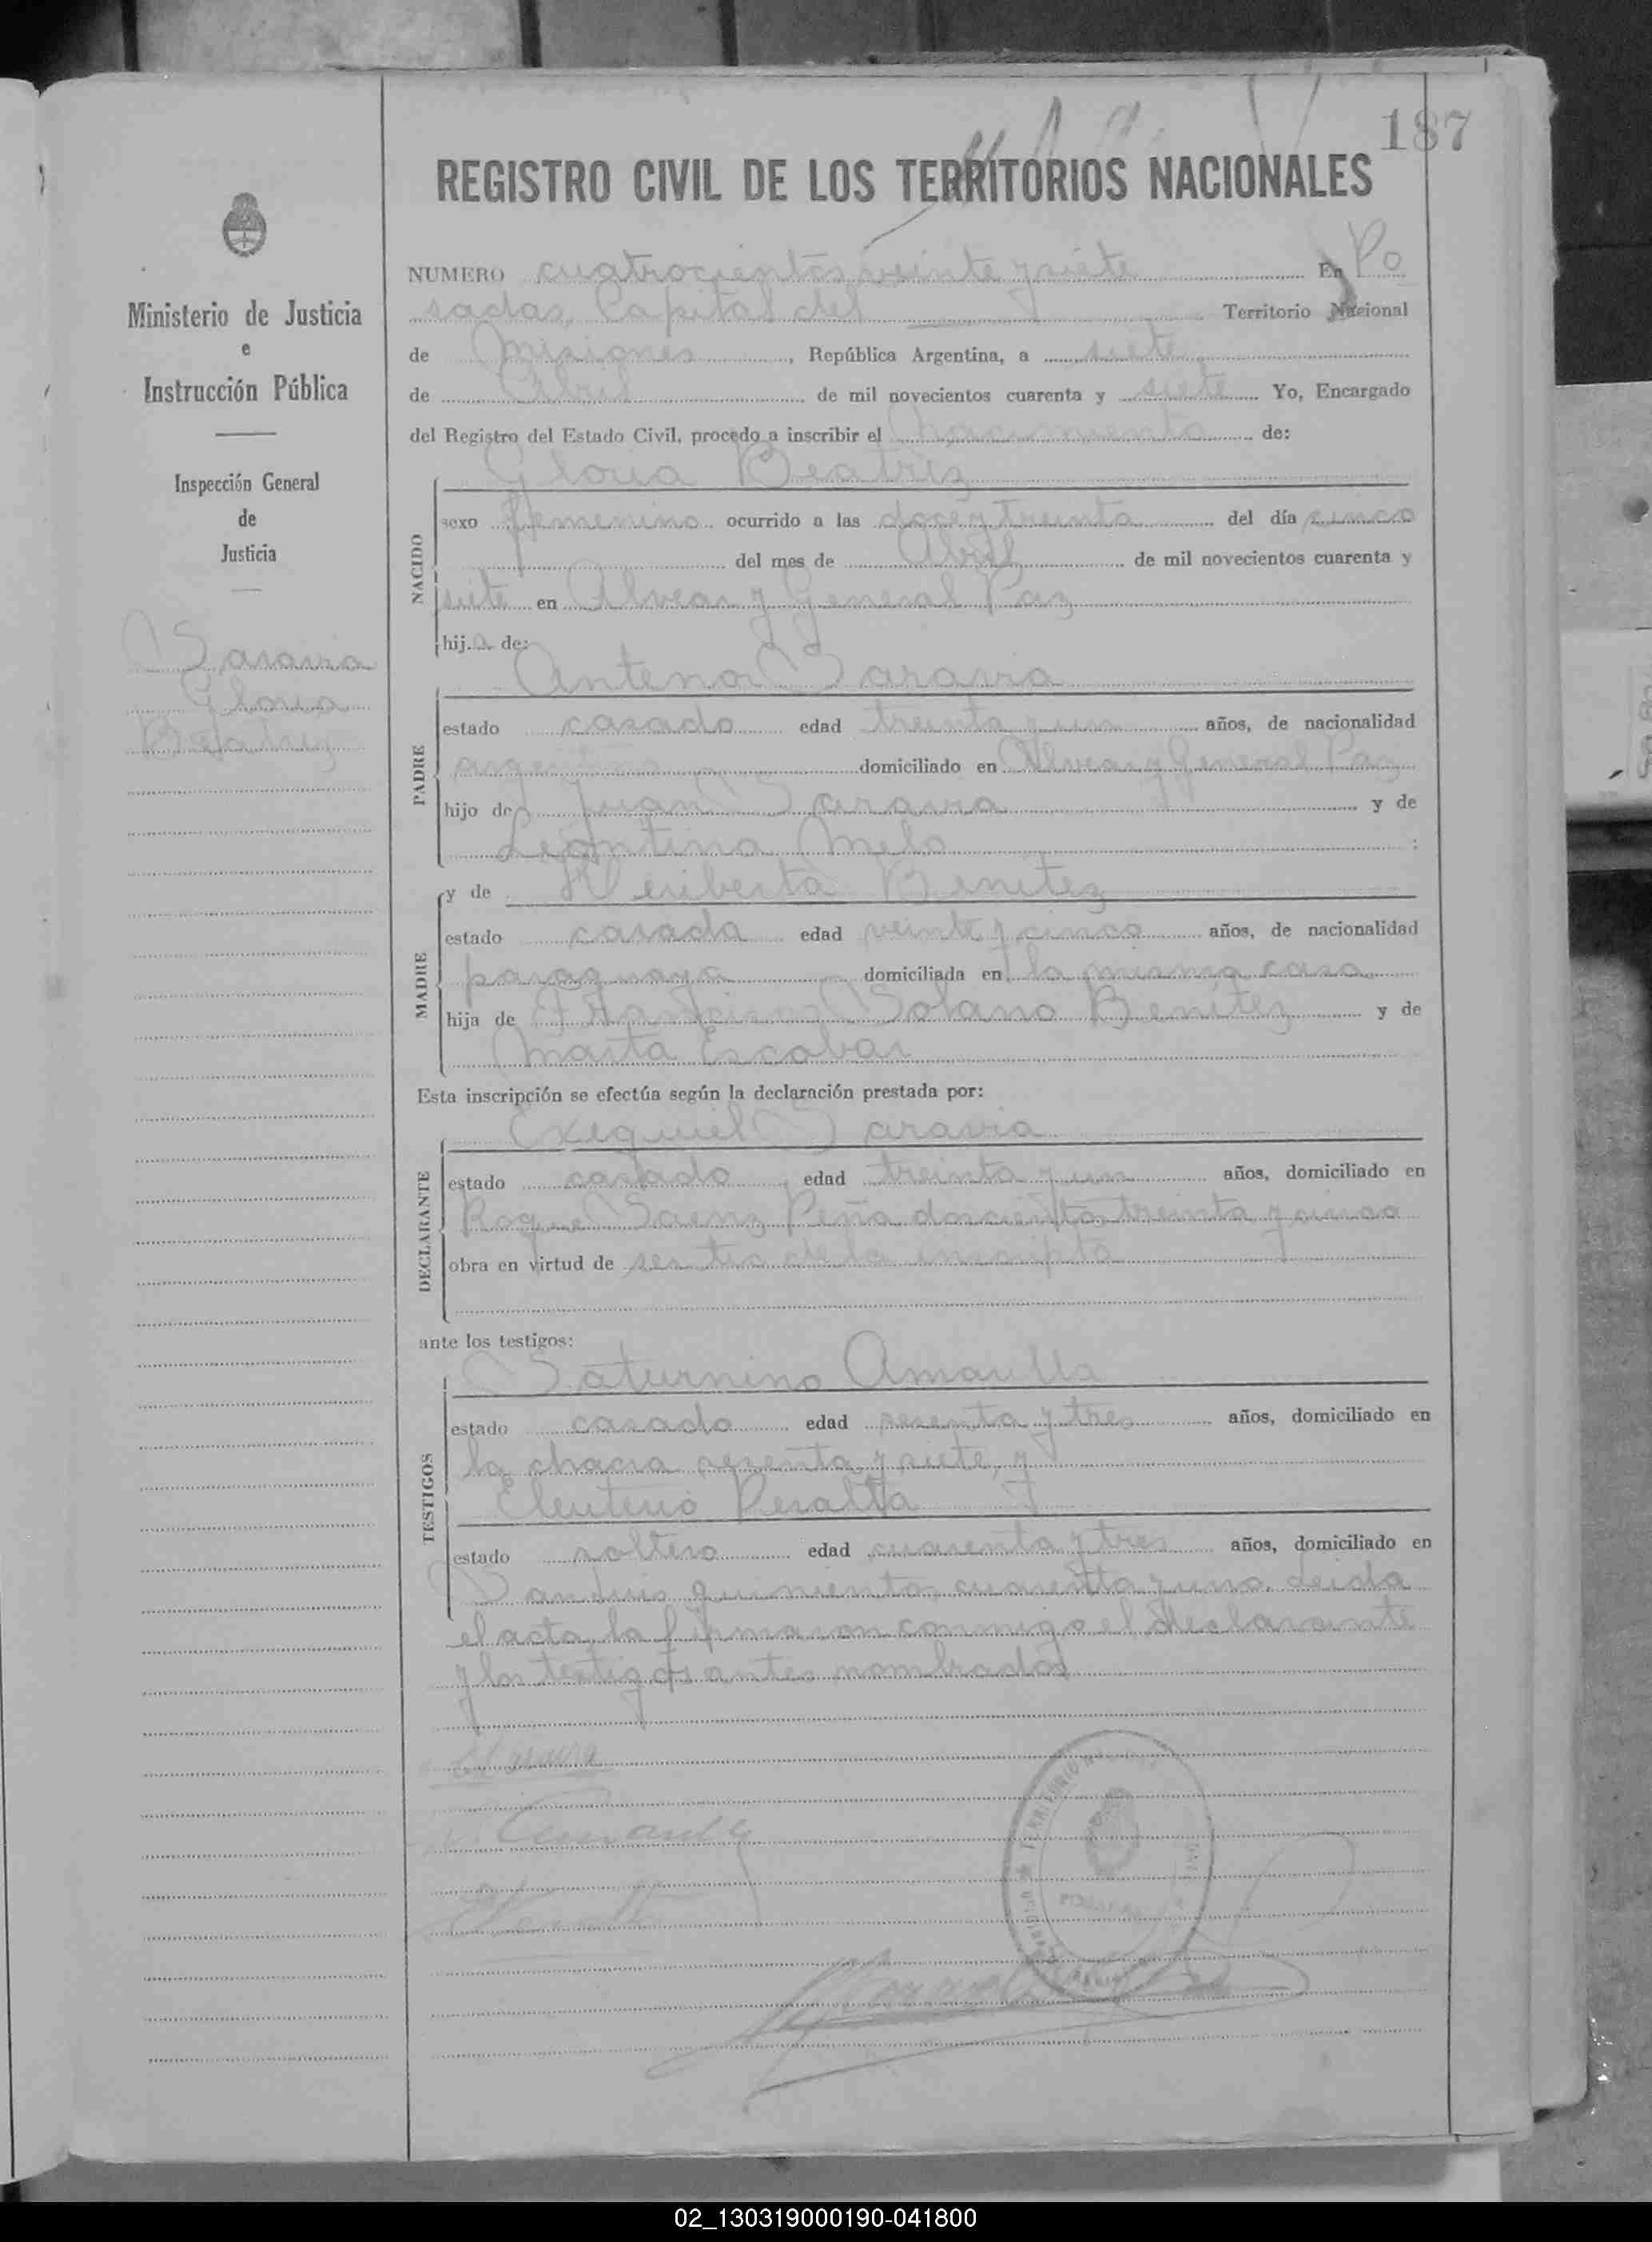 187
REGISTRO CIVIL DE LOS TERRITORIOS NACIONALES
Ministerio de Justicia
e
Instrucción Pública
Inspección General
de
Justicia
Saravia
Gloria
Beatriz
NUMERO cuatrocientos veinte y siete En Po
sadas, Capital del Territorio Nacional
de Misiones, República Argentina, a siete
de Abril de mil novecientos cuarenta y siete Yo, Encargado
del Registro del Estado Civil, procedo a inscribir el nacimiento de:
Gloria Beatriz
NACIDO
sexo femenino ocurrido a las doce y treinta del día cinco
del mes de Abril de mil novecientos cuarenta y
siete en Alvear y General Paz
hija de:
Antenor Saravia
PADRE
estado casado edad treinta y un años, de nacionalidad
argentina domiciliado en Alvear y General Paz
hijo de Juan Saravia y de
Leontina Melo :
MADRE
y de Heriberta Benitez
estado casada edad veinte y cinco años, de nacionalidad
paraguaya domiciliada en la misma casa
hija de Francisco Solano Benitez y de
Marta Escobar
Esta inscripción se efectúa según la declaración prestada por:
Exequiel Saravia
DECLARANTE
estado casado edad treinta y un años, domiciliado en
Roque Saenz Peña doscientos treinta y cinco
obra en virtud de ser tio de la inscripta
ante los testigos:
Saturnino Amarilla
TESTIGOS
estado casado edad sesenta y tres años, domiciliado en
la chacra sesenta y siete, y
Eleuterio Peralta
estado soltero edad cuarenta y tres años, domiciliado en
San Luis quinientos cuarenta y uno. Leida
el acta, la firmaron conmigo el declarante
y los testigos antes nombrados
02_130319000190-041800